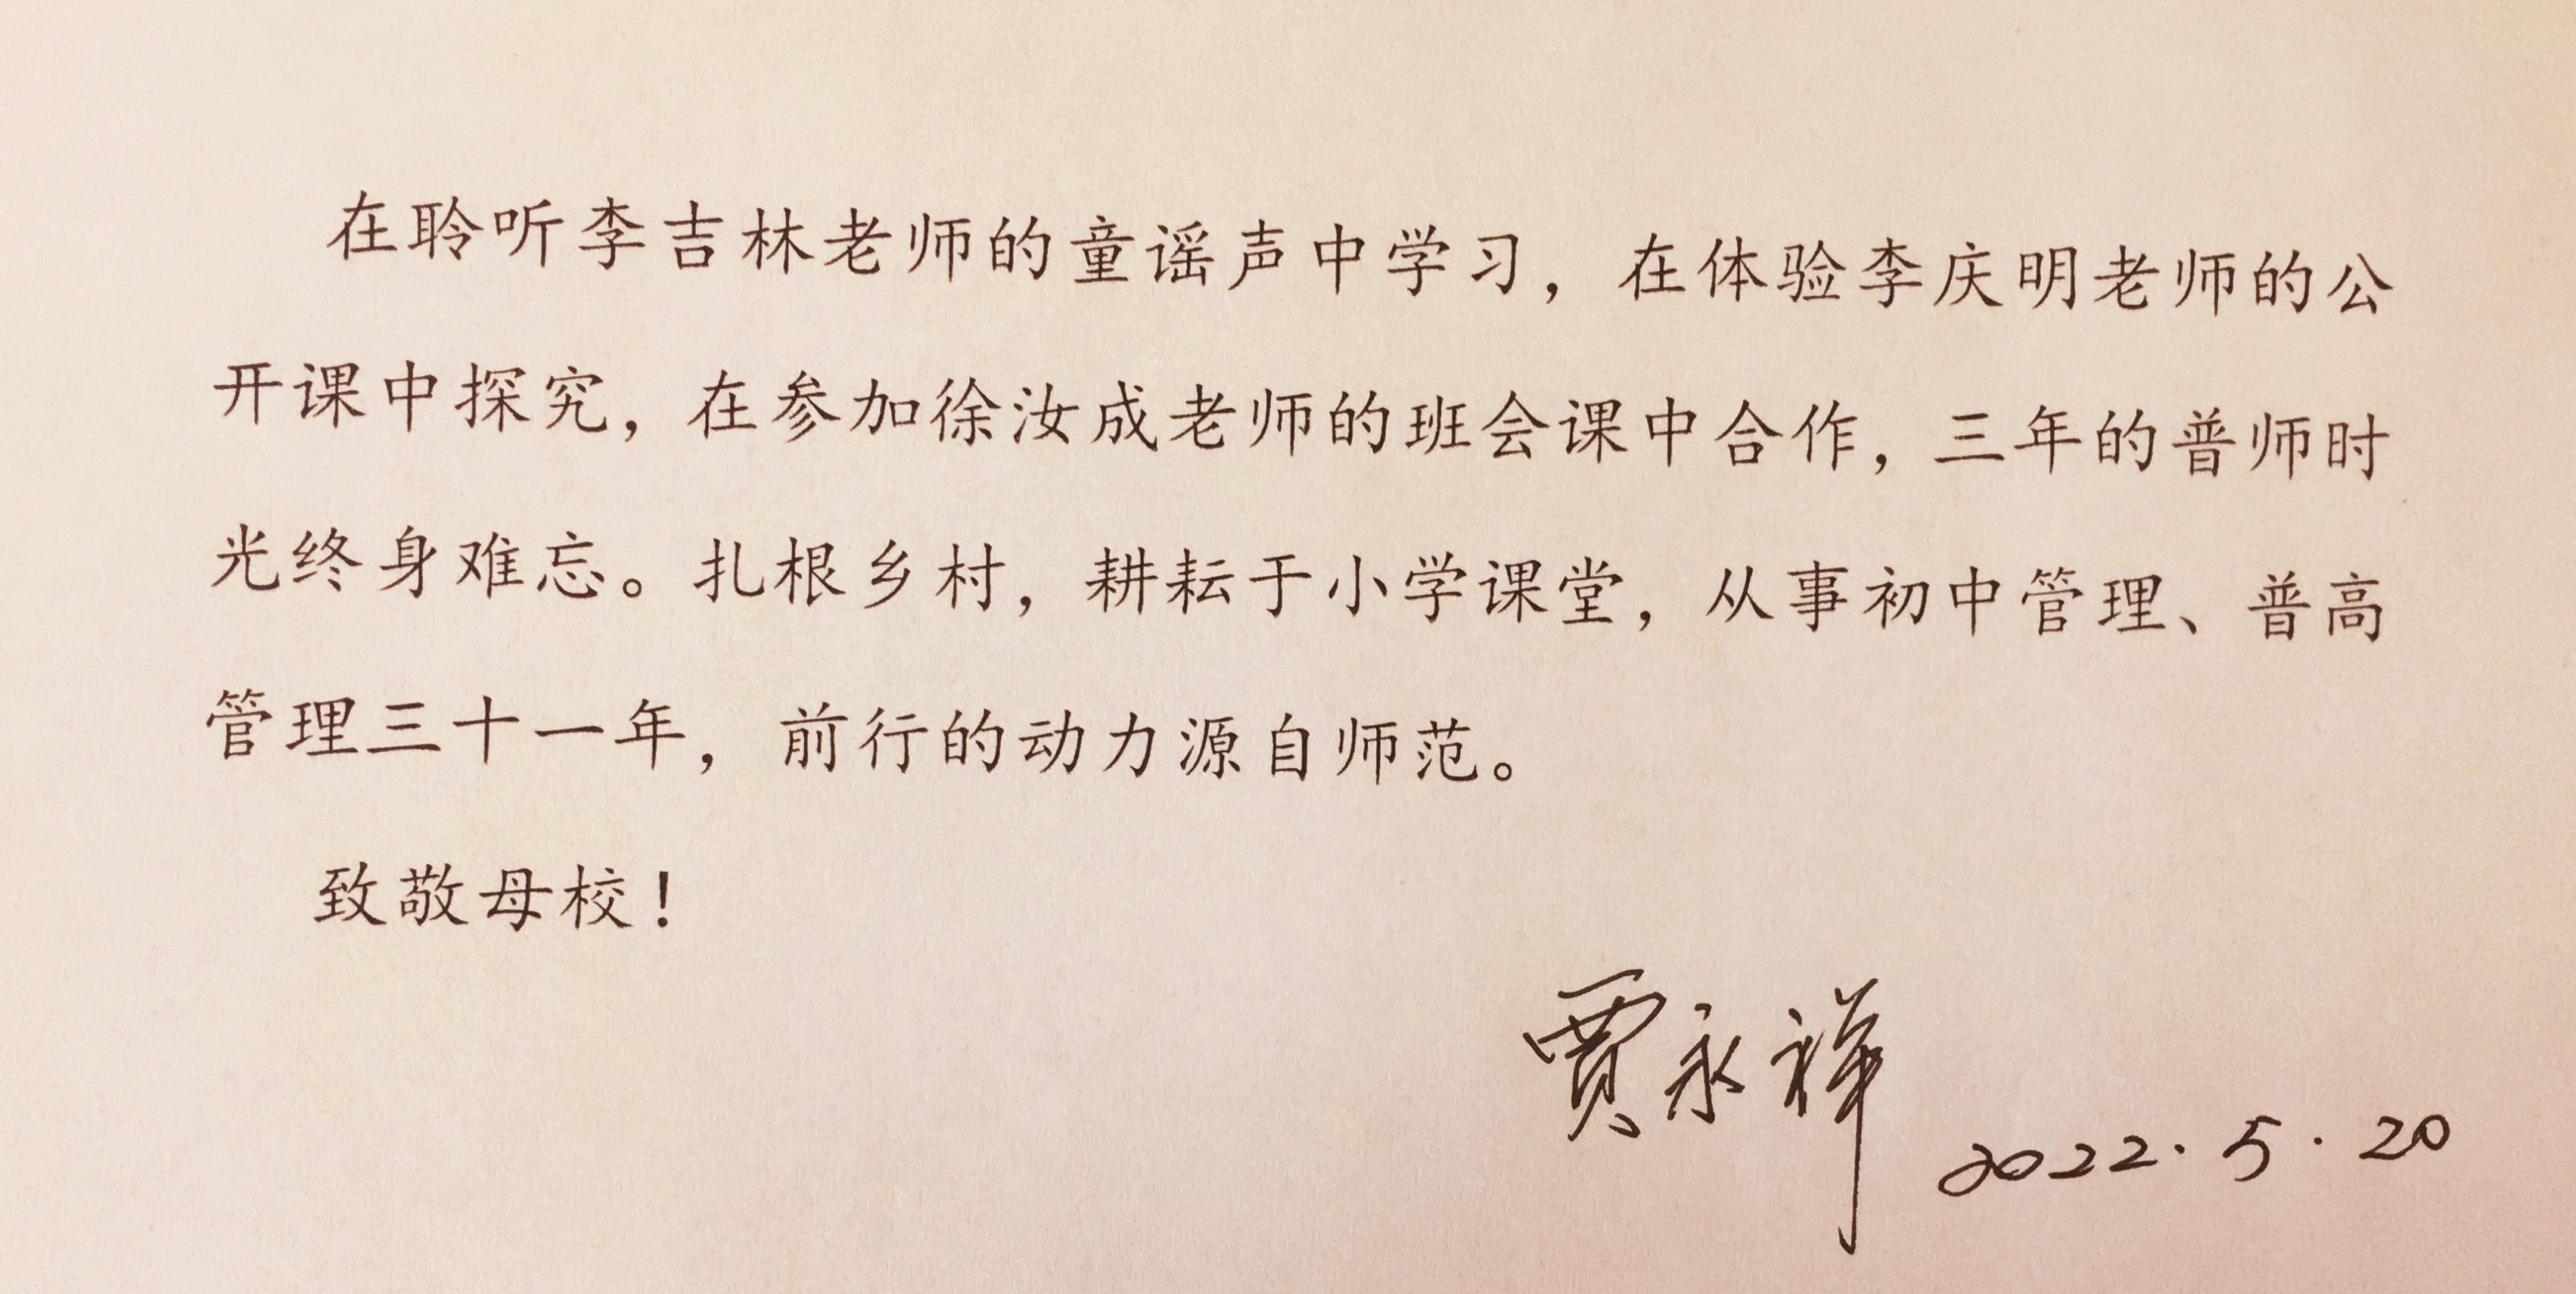 在聆听李吉林老师的童谣声中学习，在体验李庆明老师的公
开课中探究，在参加徐汝成老师的班会课中合作，三年的普师时
光终身难忘。扎根乡村，耕耘于小学课堂，从事初中管理、普高
管理三十一年，前行的动力源自师范。
致敬母校！
贾永祥
2022.5.20